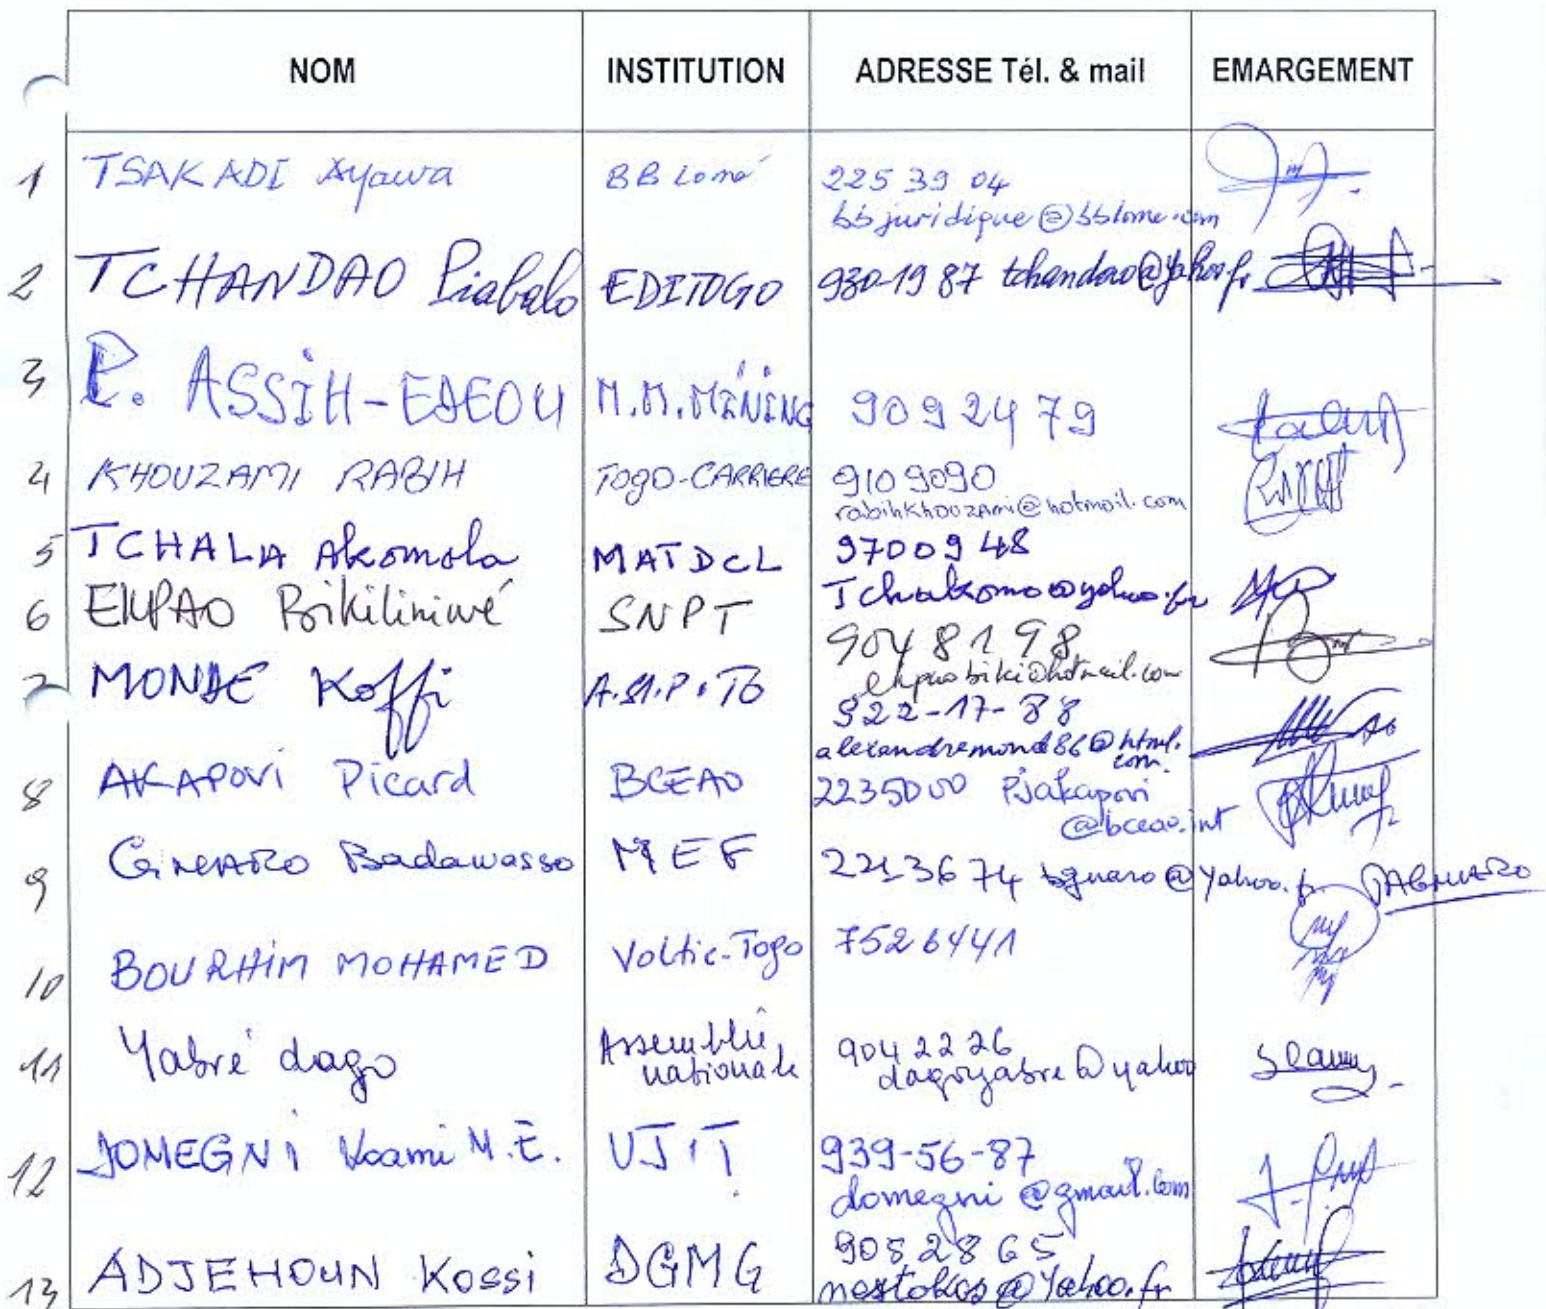 NOM INSTITUTION ADRESSE Tél. & mail EMARGEMENT
1 TSAKADI Ayawa BB Lomé 225 39 04
bbjuridique@bblome.com
2 TCHANDAO Piabalo EDITOGO 930-19 87 tchandao@yahoo.fr
3 P. ASSIH-EDEOU M.M.MINING 909 24 79
4 KHOUZAMI RABIH TOGO-CARRIERE 9109090
rabihkhouzami@hotmail.com
5 TCHALA Akomola MATDCL 9700948
Tchakomo@yahoo.fr
6 EKPAO Bikiliniwé SNPT 904 81 98
ekpaobiki@hotmail.com
7 MONDE Koffi 922-17-88
alexandremond86@html.
com
8 AKAPOVI Picard BCEAO 2235000 Pjakapovi
@bceao.int
9 GNARO Badawasso MEF 2213674 bgnaro@yahoo.fr
10 BOURHIM MOHAMED Voltic-Togo 7526441
11 Yabré dago Assemblée
nationale 904 22 26
dagoyabre@yahoo
12 DOMEGNI Koami M.E. UJIT 939-56-87
domegni@gmail.com
13 ADJEHOUN Kossi DGMG 905 28 65
nestokos@Yahoo.fr